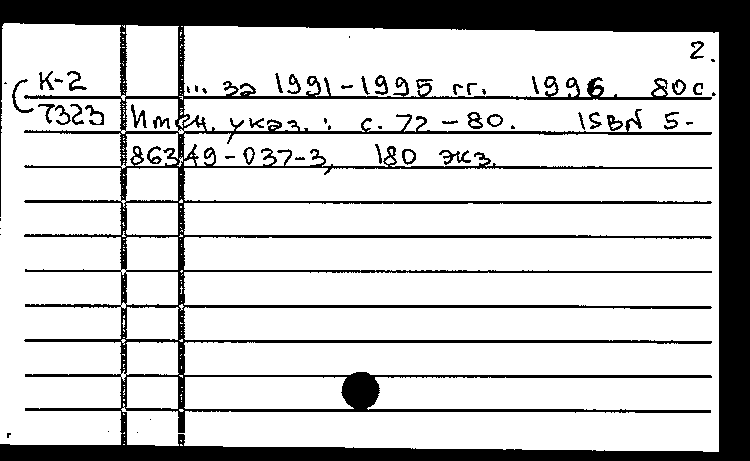 2.
К-2 ... за 1991-1995 гг. 1996. 80с.
7323 Имен. указ.: с. 72-80. ISBN 5-
86349-037-3, 180 экз.